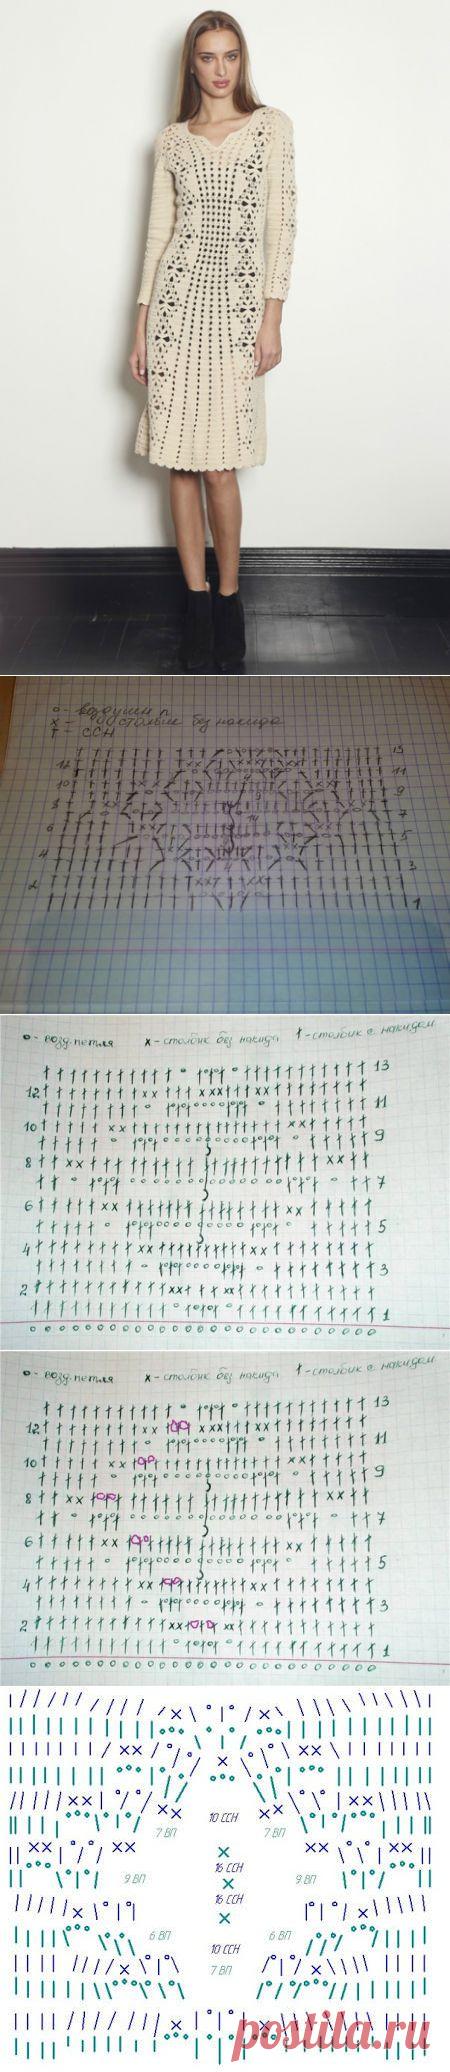 o - воздушн п
x - столбик без накида
† - ССН
12
13
11
10
9
8
7
6
5
4
3
2
1
о - возд. петля x - столбик без накида † - столбик с накидом
13
12
11
10
9
8
7
6
5
4
3
2
1
о - возд. петля x - столбик без накида † - столбик с накидом
13
12
11
10
9
8
7
6
5
4
3
2
1
10 ССН
7 ВП 7 ВП
16 ССН
9 ВП 9 ВП
16 ССН
6 ВП 6 ВП
10 ССН
7 ВП
postila.ru